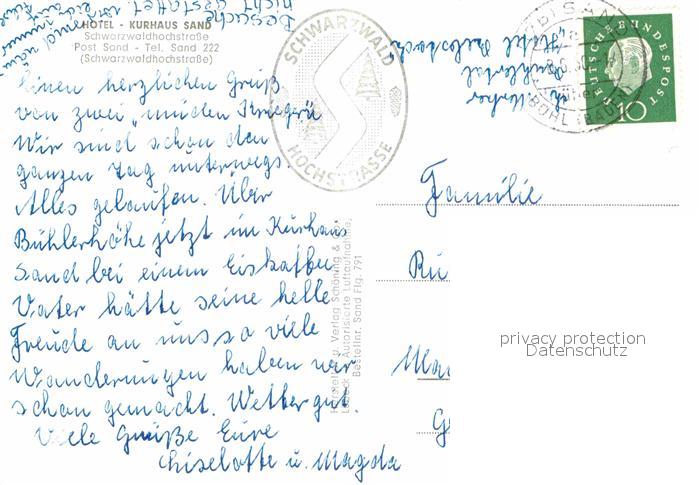 HOTEL - KURHAUS SAND
Schwarzwaldhochstraße
Post Sand - Tel. Sand 222
(Schwarzwaldhochstraße)
Besuche
nicht gestattet
Einen herzlichen Gruß
von zwei "müden Kriegern"
Wir sind schon den
ganzen Tag unterwegs.
Alles gelaufen. Über
Bühlerhöhe jetzt im Kurhaus
Sand bei einem Eiskaffee
Vater hätte seine helle
Freude an uns so viele
Wanderungen haben wir
schon gemacht. Wetter gut.
Viele Grüße Eure
Liselotte u. Magda
SCHWARZWALD
HOCHSTRASSE
SAND
BÜHL (BADEN)
DEUTSCHE BUNDESPOST
10
Hotel
Bühlertal
Familie
Rü
Ma
G
Verlag Schöning &
Autorisierte Luftaufnahme,
Bestellnr. Sand Flg. 791
privacy protection
Datenschutz